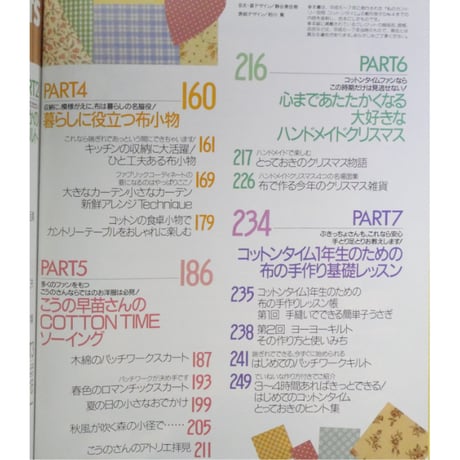 PART4
160
収納に、模様がえに、布は暮らしの名脇役!
暮らしに役立つ布小物
これなら誰でもであっという間にできちゃいます!
キッチンの収納に大活躍!
ひと工夫ある布小物
161
ファブリックコーディネートの
要になるのはやっぱりここ!
大きなカーテン小さなカーテン
新鮮アレンジTechnique
169
コットンの食卓小物で
カントリーテーブルをおしゃれに楽しむ
179
PART5
186
多くのファンをもつ
こうのさんならではのお洋服は必見!
こうの早苗さんの
COTTON TIME
ソーイング
木綿のパッチワークスカート
187
パッチワークが決め手です
春色のロマンチックスカート
193
夏の日の小さなおでかけ
199
秋風が吹く森の小径で……
205
こうのさんのアトリエ拝見
211
PART6
216
コットンタイムファンなら
この時期だけは見逃せない!
心まであたたかくなる
大好きな
ハンドメイドクリスマス
217
ハンドメイドで楽しむ
とっておきのクリスマス物語
226
ハンドメイドクリスマス4つの名場面集
布で作る今年のクリスマス雑貨
234
PART7
ぶきっちょさんも、これなら安心
手とり足とりお教えします!
コットンタイム1年生のための
布の手作り基礎レッスン
235
コットンタイム1年生のための
布の手作りレッスン帳
第1回 手縫いでできる簡単子うさぎ
238
第2回 ヨーヨーキルト
その作り方と使いみち
241
今すぐに始められる
はじめてのパッチワークキルト
249
ていねいな作り方付きでご紹介
3〜4時間あればきっとできる!
はじめてのコットンタイム
とっておきのヒント集